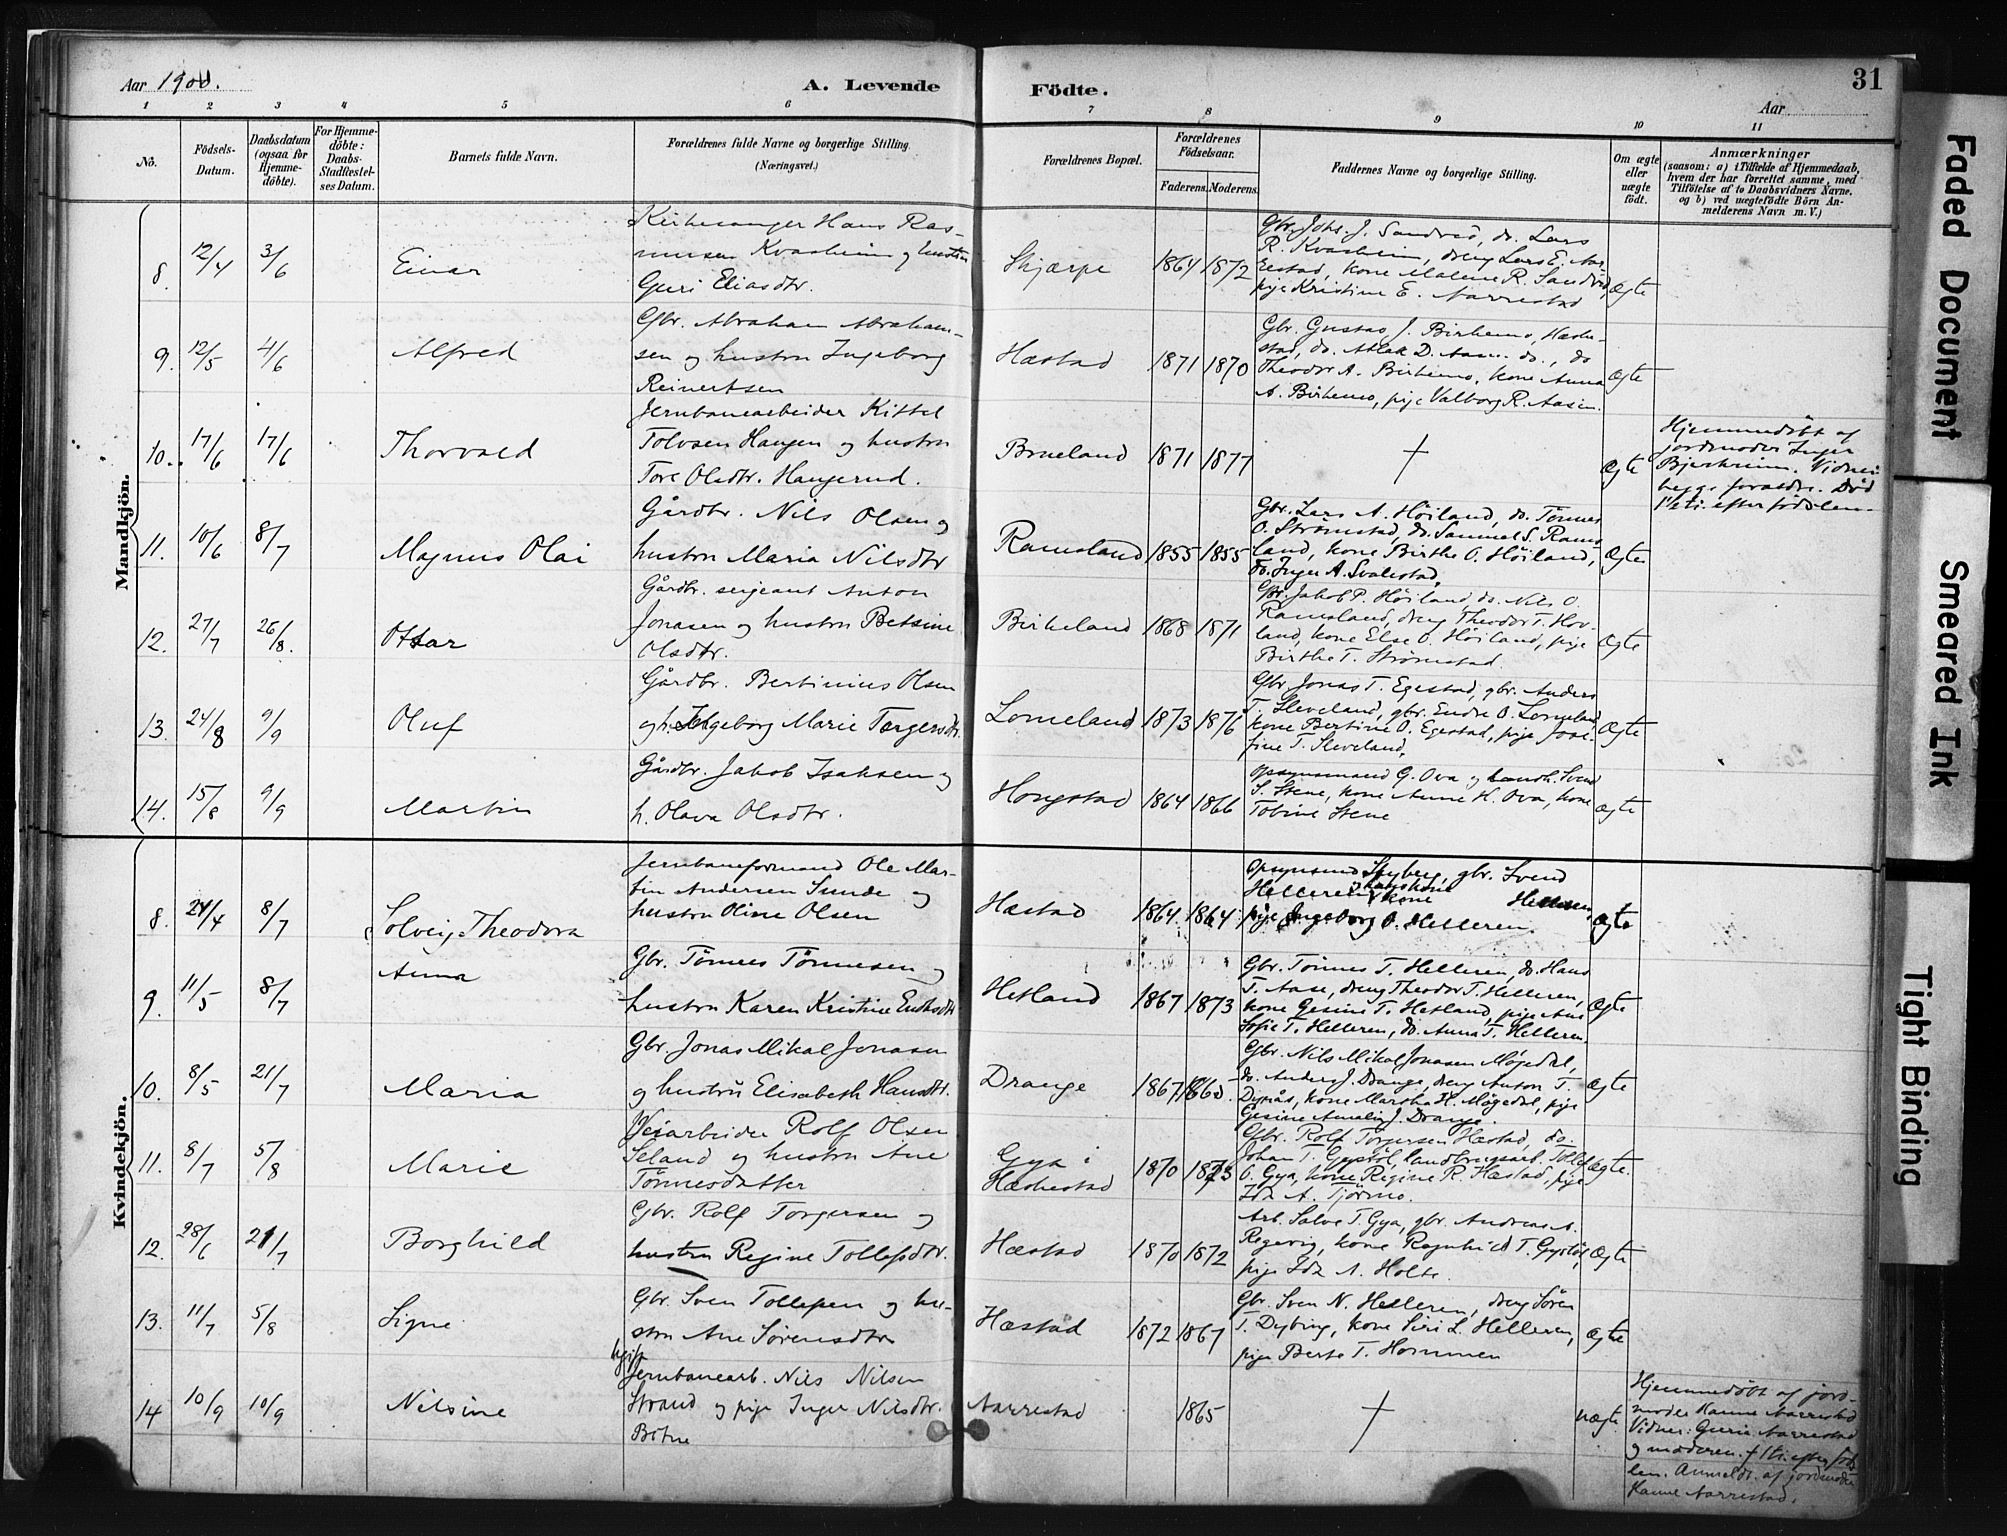 Aar 1900.
A. Levende
Födte.
Aar
31
1 2 3 4 5 6 7 8 9 10 11
No.
Födsels-
Datum.
Daabsdatum
(ogsaa for
Hjemme-
döbte).
For Hjemme-
döbte:
Daabs-
Stadfestel-
ses Datum.
Barnets fulde Navn.
Forældrenes fulde Navne og borgerlige Stilling
(Næringsvei.)
Forældrenes Bopæl.
Forældrenes
Födselsaar.
Faderens. Moderens.
Faddernes Navne og borgerlige Stilling.
Om ægte
eller
uægte
født.
Anmærkninger
(saasom: a) i Tilfælde af Hjemmedaab,
hvem der har forrettet samme, med
Tilföielse af to Daabsvidners Navne,
og b) ved uægtefödte Börn An-
melderens Navn m. V.)
Mandkjön.
8. 12/4 3/6 Einar
Kirkesanger Hans Ras-
musen Kvasheim og hustru
Guri Eliasdtr.
Skjærpe 1864 1872
Gbr. Johs. J. Sandvid, do. Lars
R. Kvasheim, dreng Lars E. Aar-
restad, kone Malene R. Sandvid,
pige Kristine E. Aarrestad
Ægte
9. 12/5 4/6 Alfred
Gbr. Abraham Abraham-
sen og hustru Ingeborg
Reinertsen
Hæstad 1871 1870
Gbr. Gustav J. Birkemo, Hæske-
stad, do. Atlak D. Aasen do., do
Theodor A. Birkemo, kone Anna
A. Birkemo, pige Valborg R. Aasen.
Ægte
10. 17/6 17/6 Thorvald
Jernbanearbeider Kittel
Tolvsen Haugen og hustru
Tore Olsdtr. Haugerud.
Brueland 1871 1877
Ægte
Hjemmedøbt af
jordmoder Inger
Bjerkreim. Vidner
begge foraldre. Død
1 ti. efter fødslen.
11. 10/6 8/7 Magnus Olai
Gårdbr. Nils Olsen og
hustru Maria Nilsdtr
Ramsland 1855 1855
Gbr. Lars A. Höiland, do. Tönnes
O. Strømstad, do. Sammel S. Rams
land, kone Birthe O. Höiland,
do. Inger A. Svalestad,
Ægte
12. 27/7 26/8. Ottar
Gårdbr. sergeant Anton
Jonasen og hustru Betsine
Olsdtr.
Birkeland 1868 1871
Gbr. Jakob P. Höiland, do. Nils O.
Ramsland, dreng Theodor T. Hov-
land, kone Else O. Höiland, pige
Birthe T. Strömstad.
Ægte
13. 24/8 9/9 Oluf
Gårdbr. Bertinius Olsen
og h. Ingeborg Marie Torgersdtr.
Lomeland 1873 1876
Gbr Jonas T. Egestad, gbr. Anders
T. Sleveland, gbr. Endre O. Lomeland,
kone Bertine O. Egestad, pige Jose-
fine T. Sleveland,
Ægte
14. 15/8 9/9 Martin
Gårdbr. Jakob Isaksen og
h. Olava Olsdtr.
Hougstad 1864 1866
Opsynsmand G. Ova og landh. Svend
S. Stene, kone Anne H. Ova, kone
Tobine Stene
Ægte
Kvindekjön.
8. 24/4 8/7 Solveig Theodora
Jernbaneformand Ole Mar-
tin Andersen Sunde og
hustru Oline Olsen
Hæstad 1864. 1864
Opsynsmd Spyberg, gbr. Svend
Helleren, kone Helleren,
pige Ingeborg O. Helleren.
Ægte
9. 11/5 8/7 Anna
Gbr. Tönnes Tönnesen og
hustru Karen Kristine Endresdtr
Hetland 1867 1873
Gbr. Tönnes T. Helleren, do. Hans
T. Aase, dreng Theodor T. Helleren,
kone Gesine T. Hetland, pige Ane
Sofie T. Helleren, do. Anna T. Helleren
Ægte
10. 8/5 21/7 Maria
Gbr. Jonas Mikal Jonasen
og hustru Elisabeth Hansdtr.
Drange 1867 1865
Gbr. Nils Mikal Jonasen Mögedal,
do. Anders J. Drange, dreng Anton T.
Dypås, kone Martha H. Mögedal, pige
Gesine Amalie J. Drange.
Ægte
11. 8/7 5/8 Marie
Veiarbeider Rolf Olsen
Seland og hustru Ane
Tönnesdatter
Gya i
Hæskestad
1870 1873
Gbr. Rolf Torgersen Hæstad, do.
Johan T. Gystøl, landbrugsarb. Tollef
O. Gya, kone Regine R. Hæstad, pige
Ida A. Tjörmo.
Ægte.
12. 28/6 21/7 Borghild
Gbr. Rolf Torgersen og
hustru Regine Tollefsdtr.
Hæstad 1870 1872
Arb. Salve T. Gya, gbr. Andreas A.
Regevig, kone Ragnhild T. Gystöl,
pige Ida A. Holte.
Ægte
13. 11/7 5/8 Signe
Gbr. Sven Tollefsen og hu-
stru Ane Sørensdtr
Hæstad 1872 1867
Gbr. Sven N. Helleren, dreng Sören
T. Dybing, kone Siri L. Helleren,
pige Berte T. Hommen
Ægte
14 10/9 10/9 Nilsine
Ugift
Jernbanearb. Nils Nilsen
Strand og pige Inger Nilsdtr.
Botne
Aarrestad 1865
uægte
Hjemmedøbt af jord-
moder Hanne Aarrestad
Vidner: Gurie Aarrestad
og moderen. † 1 ti. efter føds
len. Anmeldt af jordmoder
Hanne Aarrestad.
Faded Document
Smeared Ink
Tight Binding